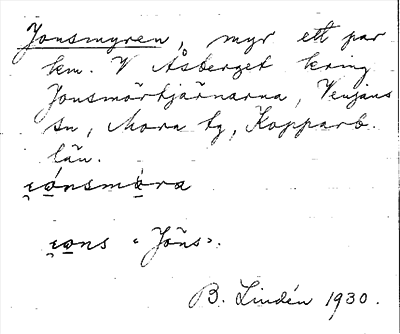 Jonsmyren, myr ett par
km. V Åsberget kring
Jonsmörtjärnarna, Venjans
sn, Mora tg, Kopparb.
län.
ɩ̯ǫ́nsmø̀ra
ɩ̯ǫns «Jöns».
B. Lindén 1930.